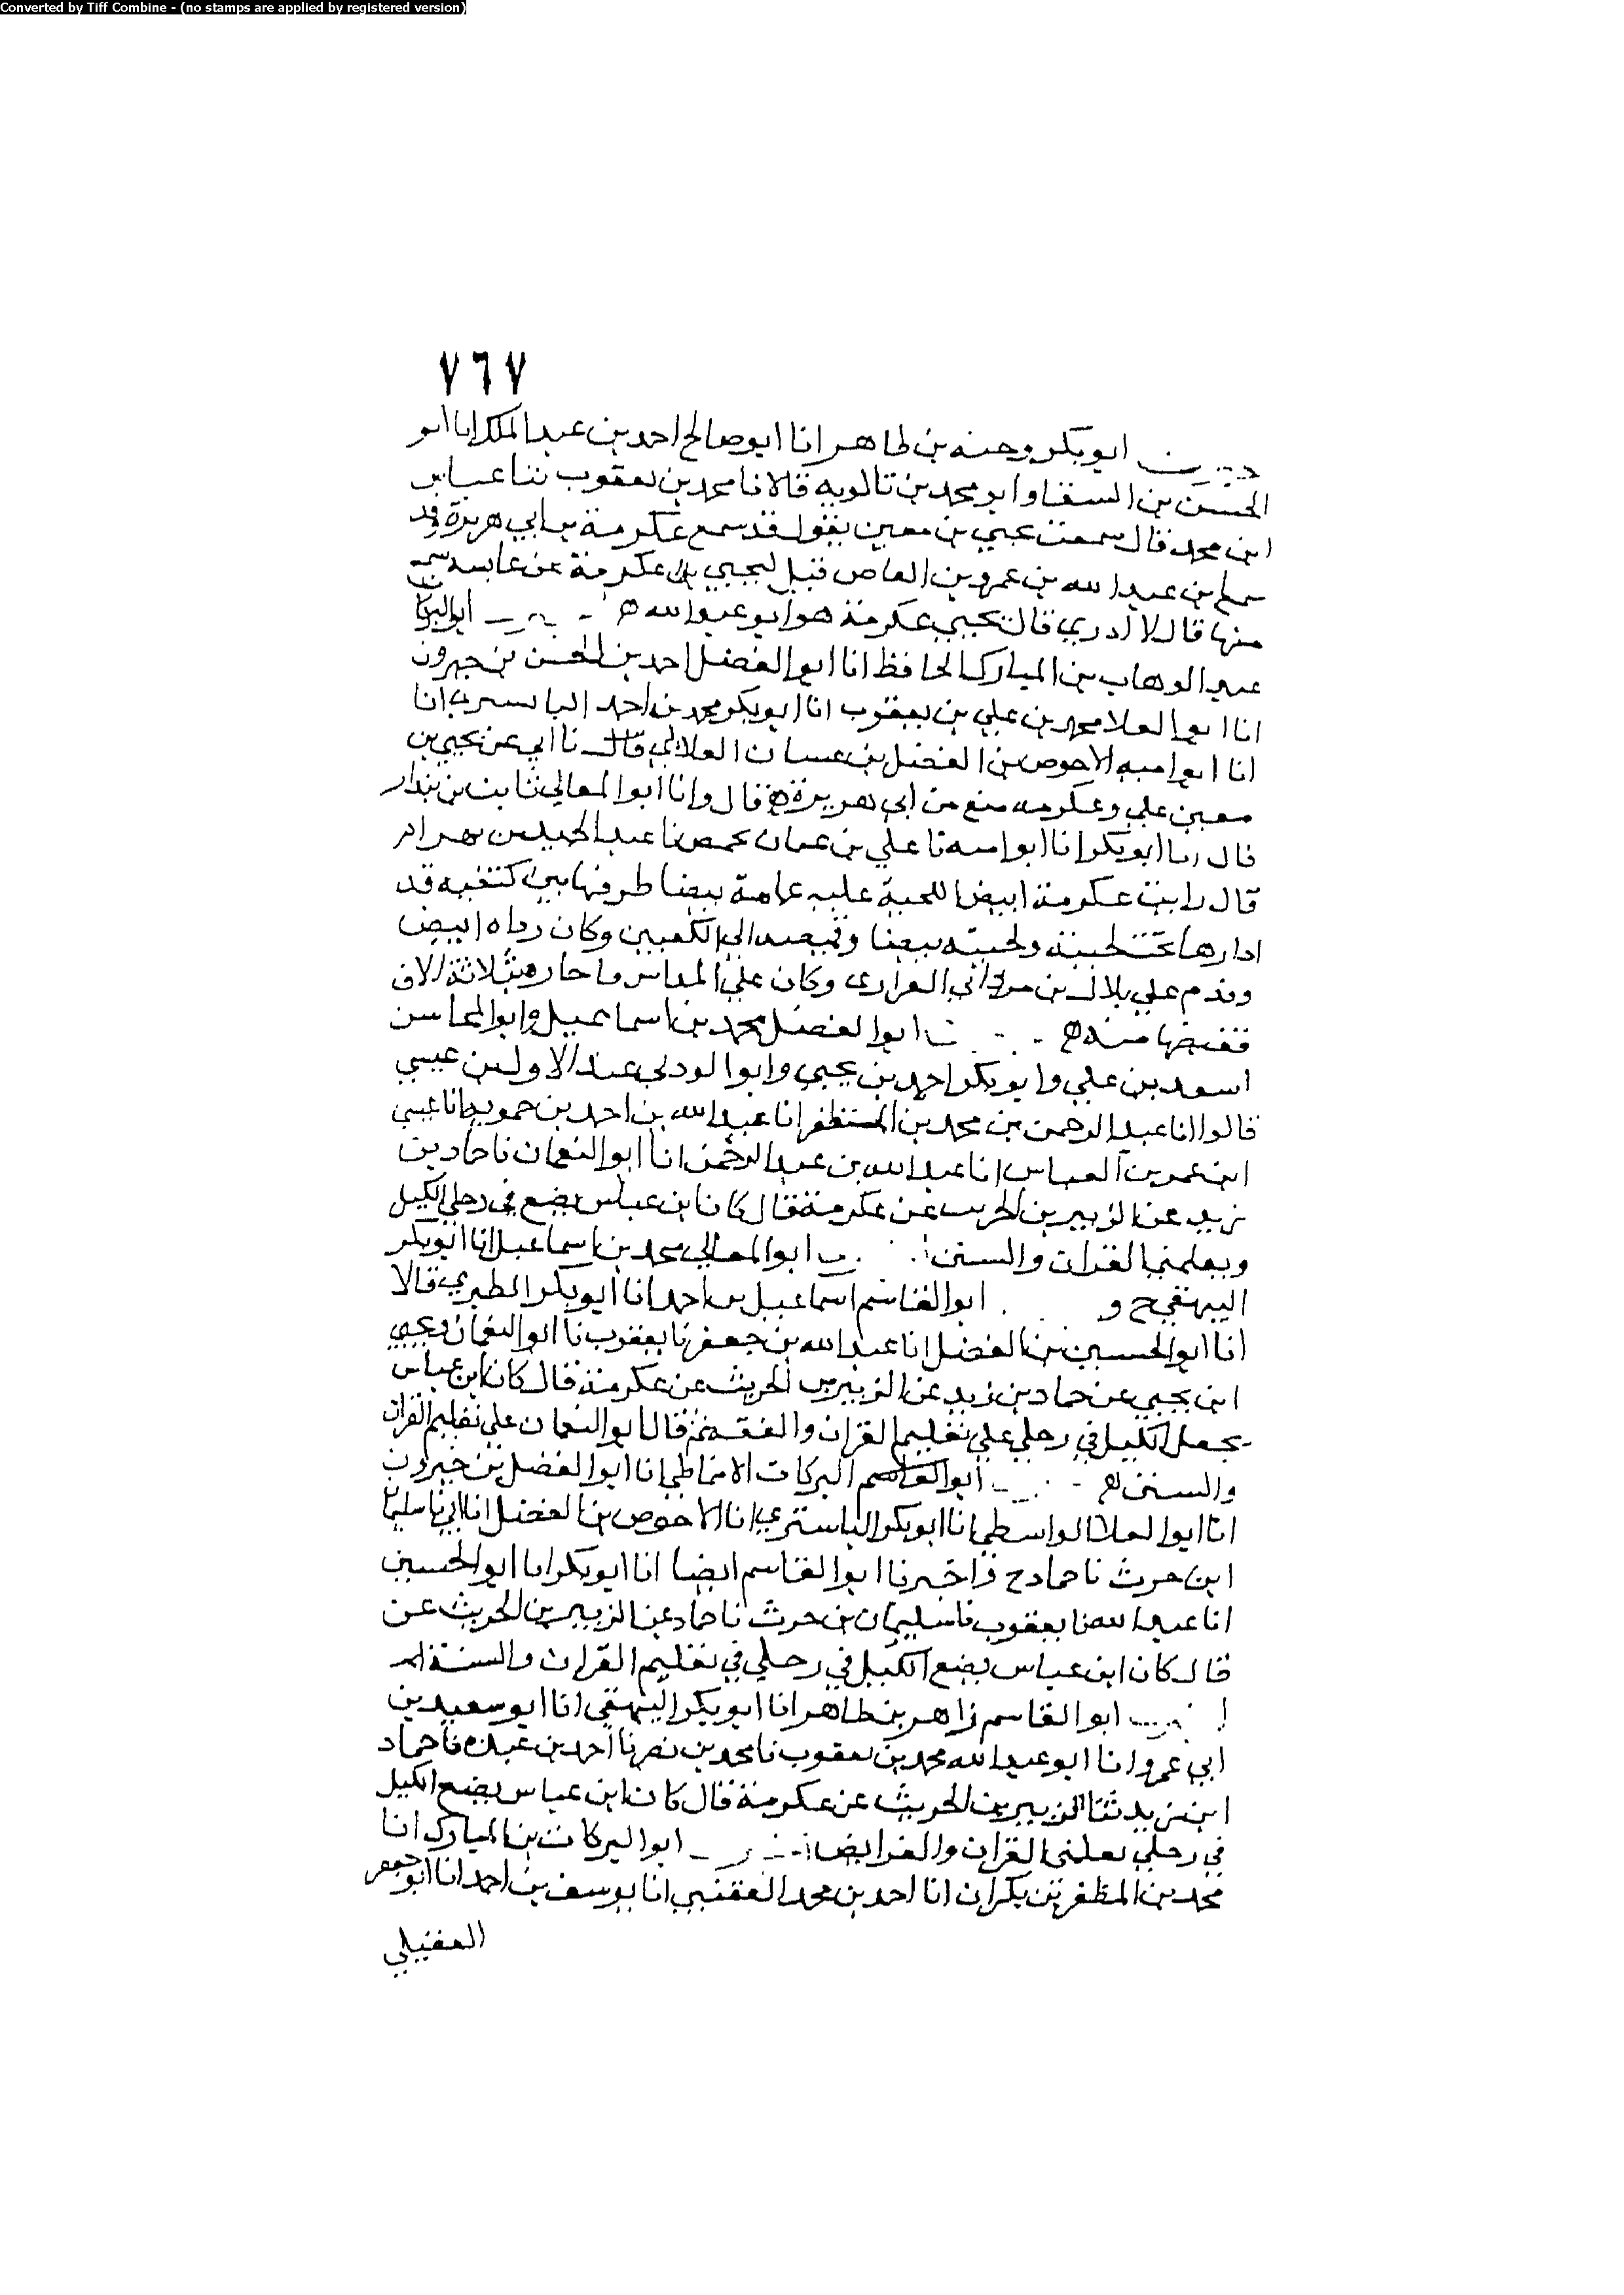 Converted by Tiff Combine - (no stamps are applied by registered version)
٧٦٧
ابو بكر وجيه بن طاهر انا ابو صالح احمد بن عبد الملك انا ابو
الحسن بن السقا وابو محمد بن بالويه قالا نا محمد بن يعقوب نا عباس
ابن محمد قال سمعت يحيى بن معين يقول قد سمع عكرمة من ابي هريرة وقد
سمع من عبد الله بن عمرو بن العاص قيل ليحيى عكرمة عن عايشه سمع
منها قال لا ادري قال يحيى عكرمة هو ابو عبد الله ابو البركات
عبد الوهاب بن المبارك الحافظ انا ابو الفضل احمد بن الحسن بن خيرون
انا ابو العلا محمد بن علي بن يعقوب انا ابو بكر محمد بن احمد البابسيري انا
انا ابو اميه الاحوص بن الفضل بن غسان الغلابي قال نا ابي عن يحيى بن
معين وعكرمه سمع من ابي هريرة قال وانا ابو المعالي ثابت بن بندار
قال انا ابو بكر انا ابو اميه نا علي بن عياش بحمص نا عبد الحميد بن بهرام
قال رايت عكرمة ابيض اللحية عليه عمامة بيضا طرفها بين كتفيه قد
ادارها تحت لحيته وقميصه الى الكعبين وكان رداه ابيض
وقدم على بلال بن مرداس الفزاري وكان على المداين فاجازه بثلاثة الاف
فقبضها منه ابو الفضل محمد بن اسماعيل وابو المحاسن
اسعد بن علي وابو بكر احمد بن يحيى وابو الوقت عبد الاول بن عيسى
قالوا انا عبد الرحمن بن محمد بن المظفر انا عبد الله بن احمد بن حمويه انا عيسى
ابن عمر بن العباس انا عبد الله بن عبد الرحمن انا ابو النعمان نا حماد بن
زيد عن الزبير بن الخريت عن عكرمة قال كان ابن عباس يضع في رجلي الكبل
ويعلمني القران والسنن ابو المعالي محمد بن اسماعيل انا ابو بكر
البيهقي ح و ابو القاسم اسماعيل بن احمد انا ابو بكر الطبري قالا
انا ابو الحسين بن الفضل انا عبد الله بن جعفر نا يعقوب نا ابو النعمان ويحيى
ابن يحيى عن حماد بن زيد عن الزبير بن الخريت عن عكرمة قال كان ابن عباس
يجعل الكبل في رجلي على تعليم القران والفقه قال ابو النعمان على تعليم القران
والسنن ابو البركات الانماطي انا ابو الفضل بن خيرون
انا ابو العلا الواسطي انا ابو بكر البابسيري انا الاحوص بن الفضل انا ابي نا سليمان
ابن حرب نا حماد ح واخبرنا ابو القاسم ايضا انا ابو بكر انا ابو الحسين
انا عبد الله نا يعقوب نا سليمان بن حرب نا حماد عن الزبير بن الخريت عن
قال كان ابن عباس يضع الكبل في رجلي في تعليم القران والسنة
ابو القاسم زاهر بن طاهر انا ابو بكر البيهقي انا ابو سعيد بن
ابي عمرو انا ابو عبد الله محمد بن يعقوب نا محمد بن نصر نا احمد بن عبده نا حماد
ابن زيد ثنا الزبير بن الخريت عن عكرمة قال كان ابن عباس يضع الكبل
في رجلي يعلمني القران والفرايض ابو البركات بن المبارك انا
محمد بن المظفر بن بكران انا احمد بن محمد العتيقي انا يوسف بن احمد انا ابو جعفر
العقيلي